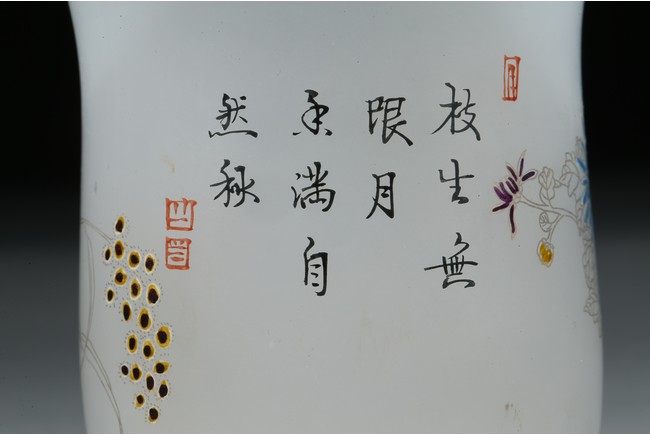 枝生無
限月
香滿自
然秋